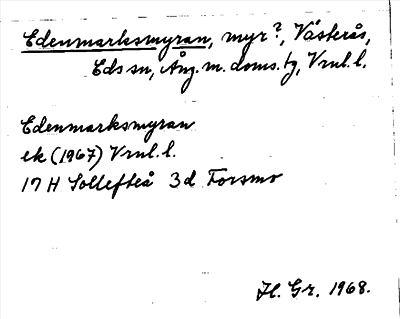 Edenmarksmyran, myr?, Västerås,
Eds sn, Ång. m. doms. tg, Vrnl. l.
Edenmarksmyran
ek (1967) Vrnl. l.
17 H Sollefteå 3 d Forsmo
H. Gr. 1968.